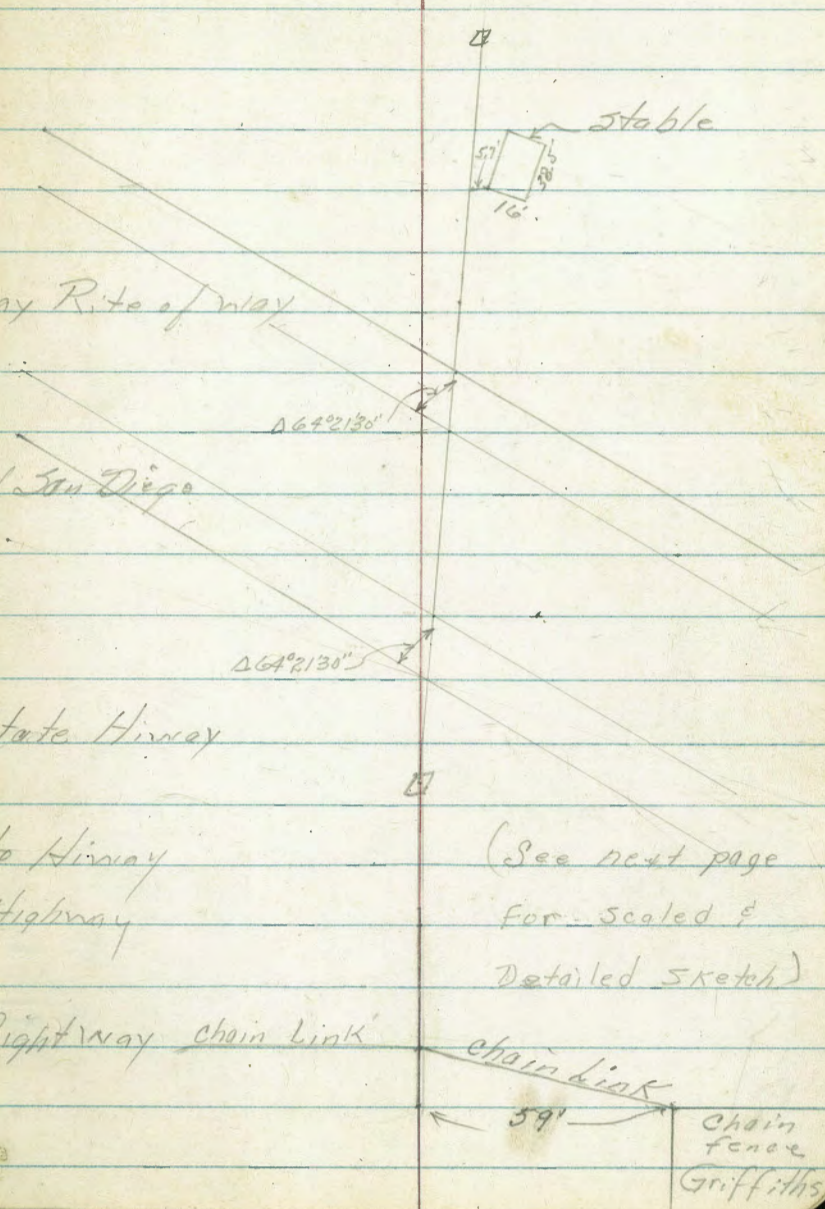 Stable
5.7'
38.5'
16'
ny Rite of way
Δ64°21'30"
San Diego
Δ64°21'30"
tate Hiway
o Hiway
(See next page
Highway
for scaled &
Detailed Sketch)
Rightway chain Link
chain Link
59'
Chain
fence
Griffiths